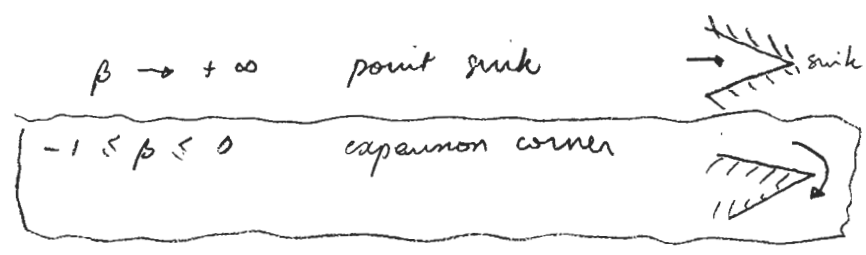 β → + ∞ point sink sink
-1 ≤ β ≤ 0 expansion corner